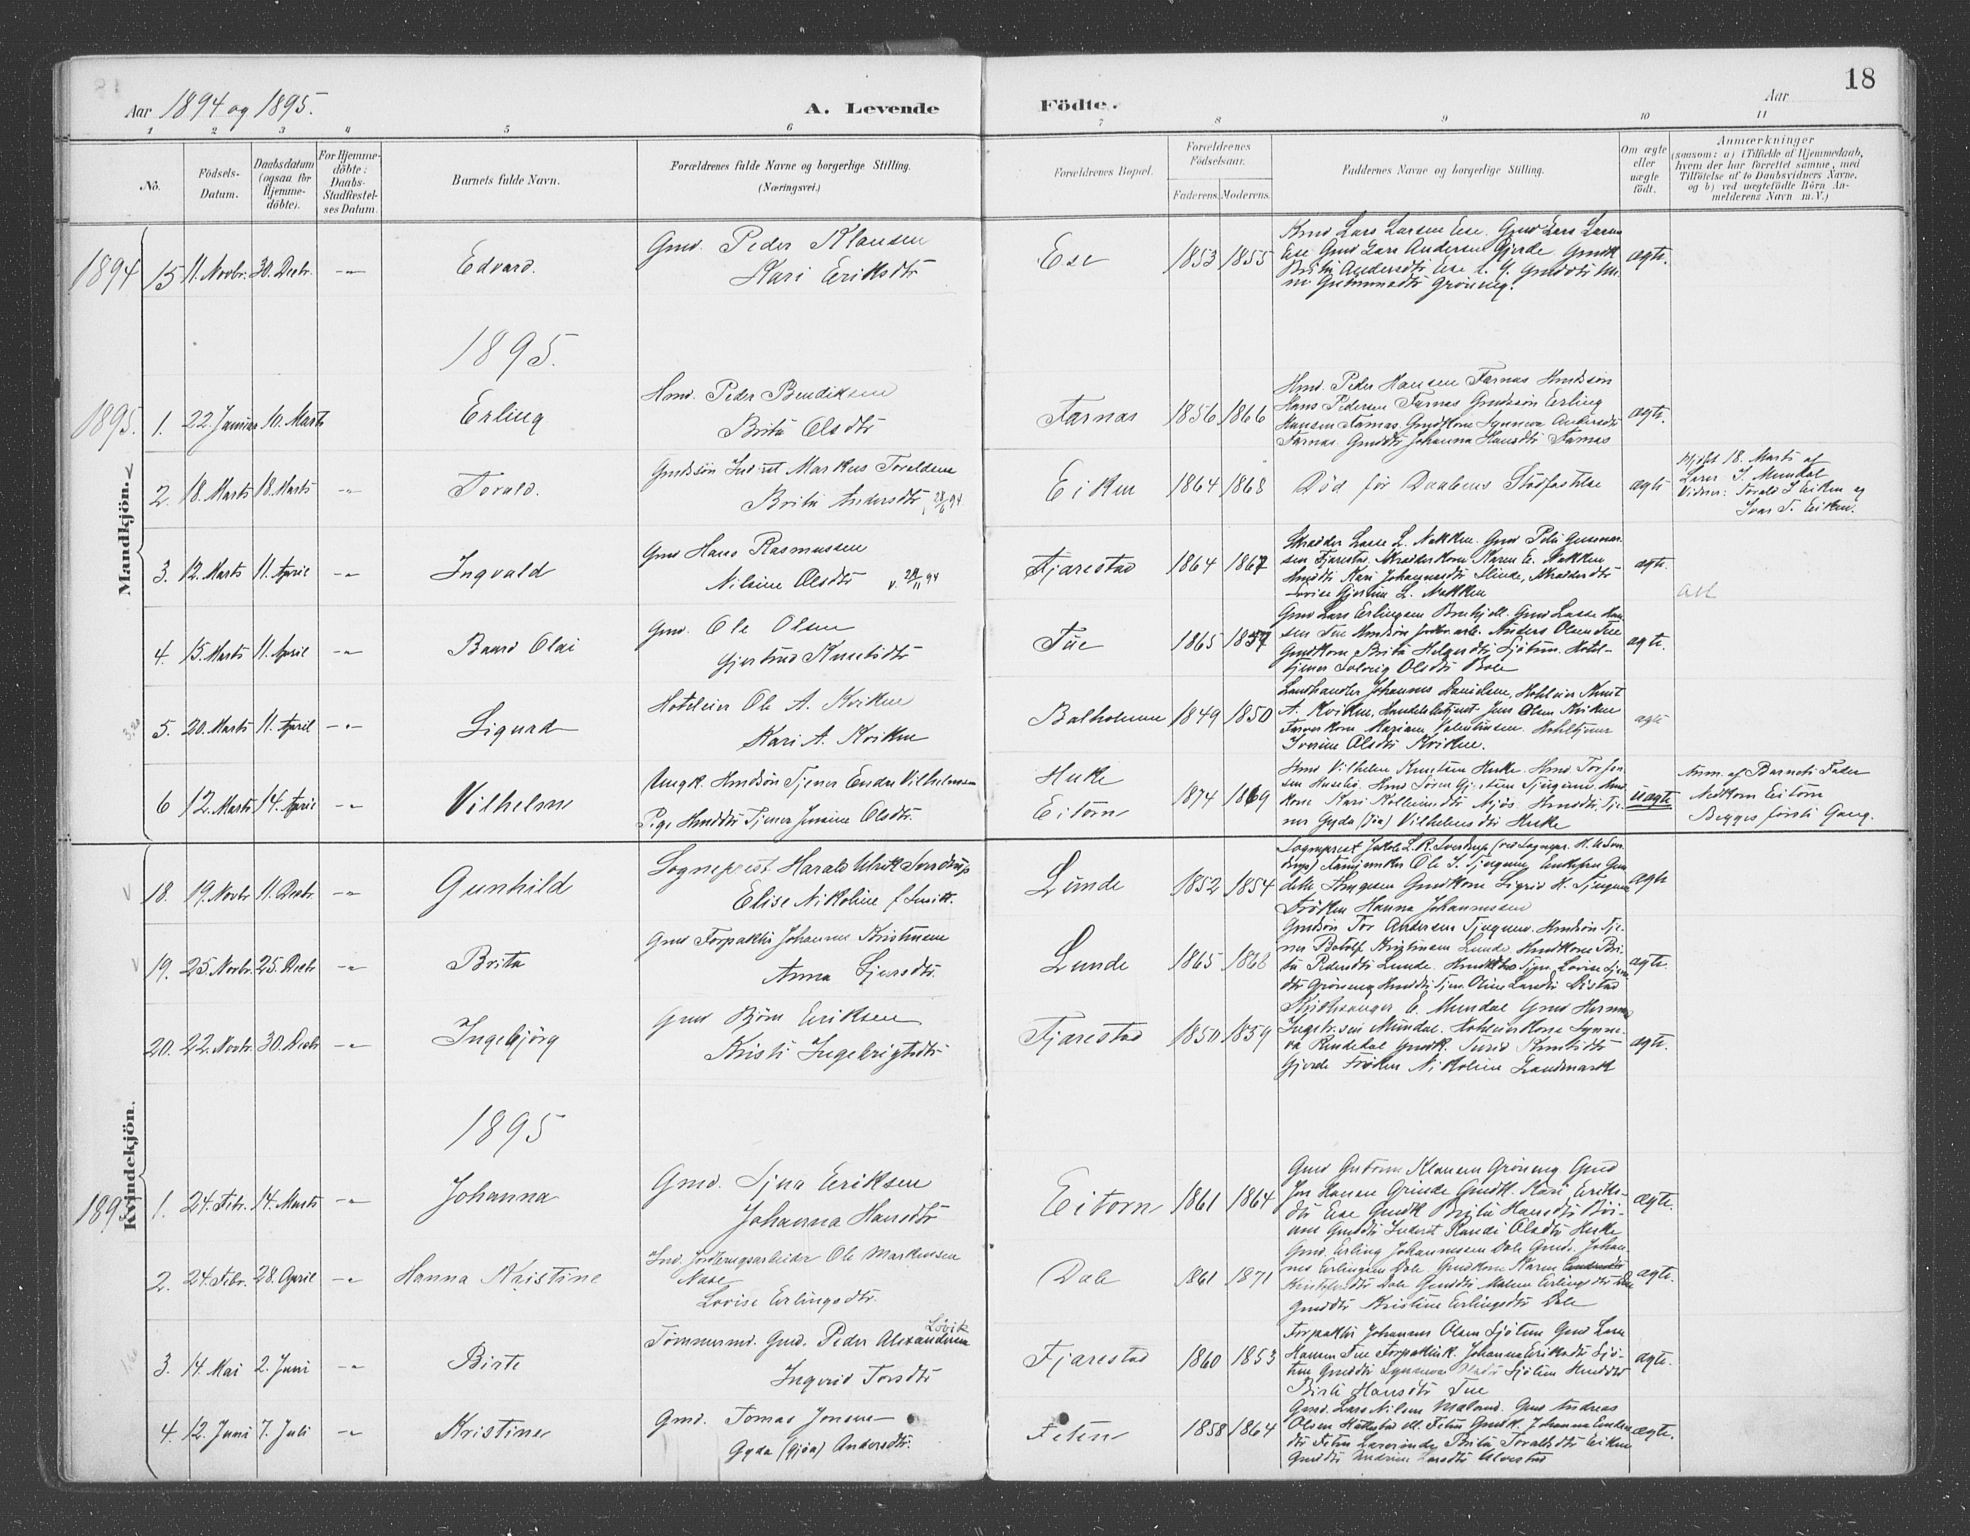 18
Aar 1894 og 1895.
A. Levende
Födte.
Aar
1 2 3 4 5 6 7 8 9 10 11
No.
Födsels-
Datum.
Daabsdatum
(ogsaa for
Hjemme-
döbte).
For Hjemme-
döbte:
Daabs-
Stadfæstel-
ses Datum.
Barnets fulde Navn.
Forældrenes fulde Navne og borgerlige Stilling.
(Næringsvei.)
Forældrenes Bopæl.
Forældrenes
Födselsaar.
Faderens. Moderens.
Faddernes Navne og borgerlige Stilling.
Om ægte
eller
uægte
födt.
Anmærkninger
(saasom: a) i Tilfælde af Hjemmedaab,
hvem der har forrettet samme, med
Tilföielse af to Daabsvidners Navne,
og b) ved uægtefödte Börn An-
melderens Navn m. V.)
Mandkjön.
1894 15 11. Novbr. 30. Decbr. -"- Edvard.
Gmd. Peder Klausen
Kari Eriksdtr
Ese 1853 1855
Kmd Lars Larsen Ese. Gmd Lars Larsen
Ese Gmd Lars Andersen Gjerde Gmdk
Brita Andersdtr Ese
Gutormsdtr Gröneng.
ægte.
1895.
1895. 1. 22 Januar 10. Marts Erling
Hmd. Peder Bendiksen
Brita Olsdtr
Farnas 1856 1866
Hmd. Peder Hansen Farnas Hmdssön
Hans Pedersen Farnas Gmdssön Erling
Hansen Farnas. Gmdkone Synneva Andersdtr
Farnas. Gmddtr Johanna Hansdtr Farnas
ægte.
2. 18. Marts 18. Marts -"- Torald.
Gmdssön Inderst Markus Toraldsen
Brita Andersdtr
Eiken 1864 1868
Död för Daabens Stadfæstelse
ægte
Hjdbt 18. Marts af
Lærer I. Mundal
Vidner: Torald I Eiken og
Ivar T. Eiken.
3. 12. Marts 11. April -"- Ingvald
Gmd Hans Rasmussen
Nilsine Olsdtr
Fjarestad 1864 1867
Skrædder Lasse L. Nakken. Gmd Peder
sen Fjarestad. Skrædderkone Karen E. Nakken
Hmddtr Kari Johannesdtr Slinde, Skrædderdtr
Lovise Gjertine L. Nakken
ægte.
4. 15. Marts 11. April -"- Baard Olai
Gmd. Ole Olsen
Gjertrud Knutsdtr
Tue 1865 1857
Gmd Lars Erlingsen Gmd Lasse Han-
sen Tue Hmdssön Anders Olsen Tue
Gmdkone Brita Helgesdtr Sjötun. Hotel-
tjener Solveig Olsdtr Bale
ægte.
5. 20. Marts 11. April -"- Sigurd
Hoteleier Ole A. Kvikne
Kari A. Kvikne
Balholmen 1849 1850
Landhandler Johannes Danielsen, Hoteleier Knut
A. Kvikne, Handelsbetjent Jens Olsen Kvikne
Farverkone Mariane Valentinsen. Hoteltjener
Olsdtr Kvikne.
ægte
6 12. Marts 14. April -"- Vilhelm
Ungk. Hmdssön Tjener Endre Vilhelmsen
Pige Hmddtr Tjener Olsdtr.
Huke
Eitorn 1874 1869
Hmd Vilhelm Knutsen Huke. Hmd
Kari
Gyda (Gjöa) Vilhelmsdtr Huke
uægte
Anm. af Barnets Fader
Nedkom Eitorn
Begges förste Gang.
Kvindekjön.
18. 19. Novbr 11. Decbr -"- Gunhild
Sogneprest Harald Ulrik Sverdrup
Elise Nikoline f. Smitt.
Lunde 1852 1854
Sogneprest Jakob L. R. Sverdrup
Ole S. Tjugum, Enkefru
Gmdkone Sigrid H. Tjugum
Fröken Hanna Johannessen
ægte
19. 25. Novbr. 25. Decbr -"- Brita
Gmd Forpakter Johannes Kristensen
Anna Sjursdtr.
Lunde 1865 1868
Gmdssön Tor Andersen Tjugum. Hmdssön Tje-
ner Botolf Kristensen Lunde Hmdkone Bri-
ta Pedersdtr Lunde.
ægte.
20. 22. Novbr. 30. Decbr -"- Ingebjörg
Gmd Björn Eriksen
Kristi Ingebrigtsdtr
Fjarestad 1850 1859
Kirkesanger E. Mundal Gmd Herman
Mundal. Hoteleierkone Synne-
va Gmdk. Knutsdtr
Gjerde Fröken Nikoline Landmark
ægte.
1895
1895 1. 24. Febr. 14. Marts -"- Johanna
Gmd. Sjur Eriksen
Johanna Hansdtr
Eitorn 1861 1864
Gmd Gutorm Klausen Gröneng Gmd
Jon Hansen Grinde Gmdk. Kari Eriks-
dtr Ese Gmdk Brita Hansdtr
Gmddtr Inderst Randi Olsdtr Huke
ægte.
2. 24. Febr. 28. April -"- Hanna Kristine
Ind. Jordbrugsarbeider Ole Markussen
Nase
Lovise Erlingsdtr.
Dale 1861 1871
Gmd. Erling Johannessen Dale Gmds. Johan-
nes Erlingsen Dale. Gmdkone Karen
Dale Gmddtr Malene Erlingsdtr Dale
Gmddtr Kristine Erlingsdtr Dale
ægte.
3. 14. Mai 2. Juni -"- Birte
Tömmermd. Gmd. Peder Alexandersen Lövik
Ingerid Torsdtr
Fjarestad 1860 1853
Forpakter Johannes Olsen Sjötun Gmd Lars
Hansen Tue Forpakterk. Johanna Eriksdtr Sjö-
tun Gmddtr Synneva Olsdtr Sjötun Hmddtr
Birte Hansdtr Tue
ægte.
4. 12. Juni 7. Juli -"- Kristine
Gmd. Tomas Jonsen
Gyda (Gjöa) Andersdtr.
Feten 1858 1864
Gmd. Lars Nilsen Gmd Andreas
Olsen Feten Gmdk. Johanna
dtr Feten Lærerinde Brita Toraldsdtr Eiken
Gmddtr Andrine Larsdtr Alvestad
ægte.